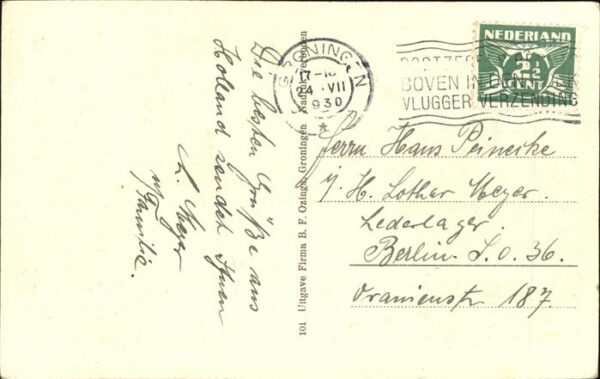 Die besten Grüße aus
Holland sendet Ihnen
L. Meyer
u/ Familie.
101 Uitgave Firma B. F. Ozinga, Groningen Nadruk verboden
GRONINGEN
17-18
24 VII
1930
NEDERLAND
2½
CENT
BOVEN IN
VLUGGER VERZENDING
Herrn Hans Peinecke
i/. H. Lothar Meyer.
Lederlager.
Berlin. S.O. 36.
Oranienstr 187.